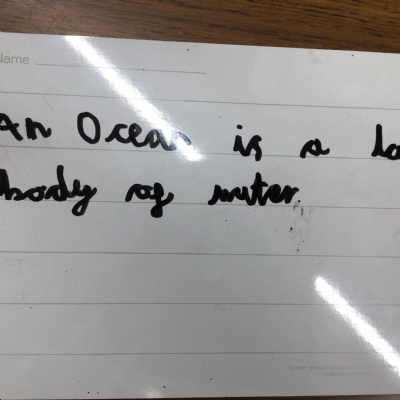 Name
An Ocean is a la
body of water.